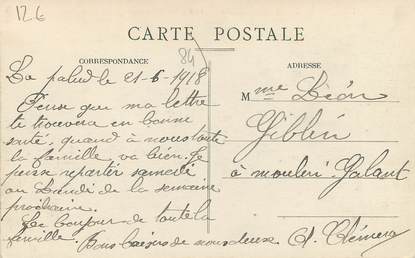 126
CARTE POSTALE
84
CORRESPONDANCE
ADRESSE
La palud le 21-6-1918
Pense que ma lettre
te trouvera en bonne
santé, quand à nous toute
la famille, va bien. Je
pense repartir samedi
ou Lundi de la semaine
prochain.
Le bonjour de toute la
famille. Bons baisers de nous deux.
Mme Léon
Giblin
à moulin. Galant